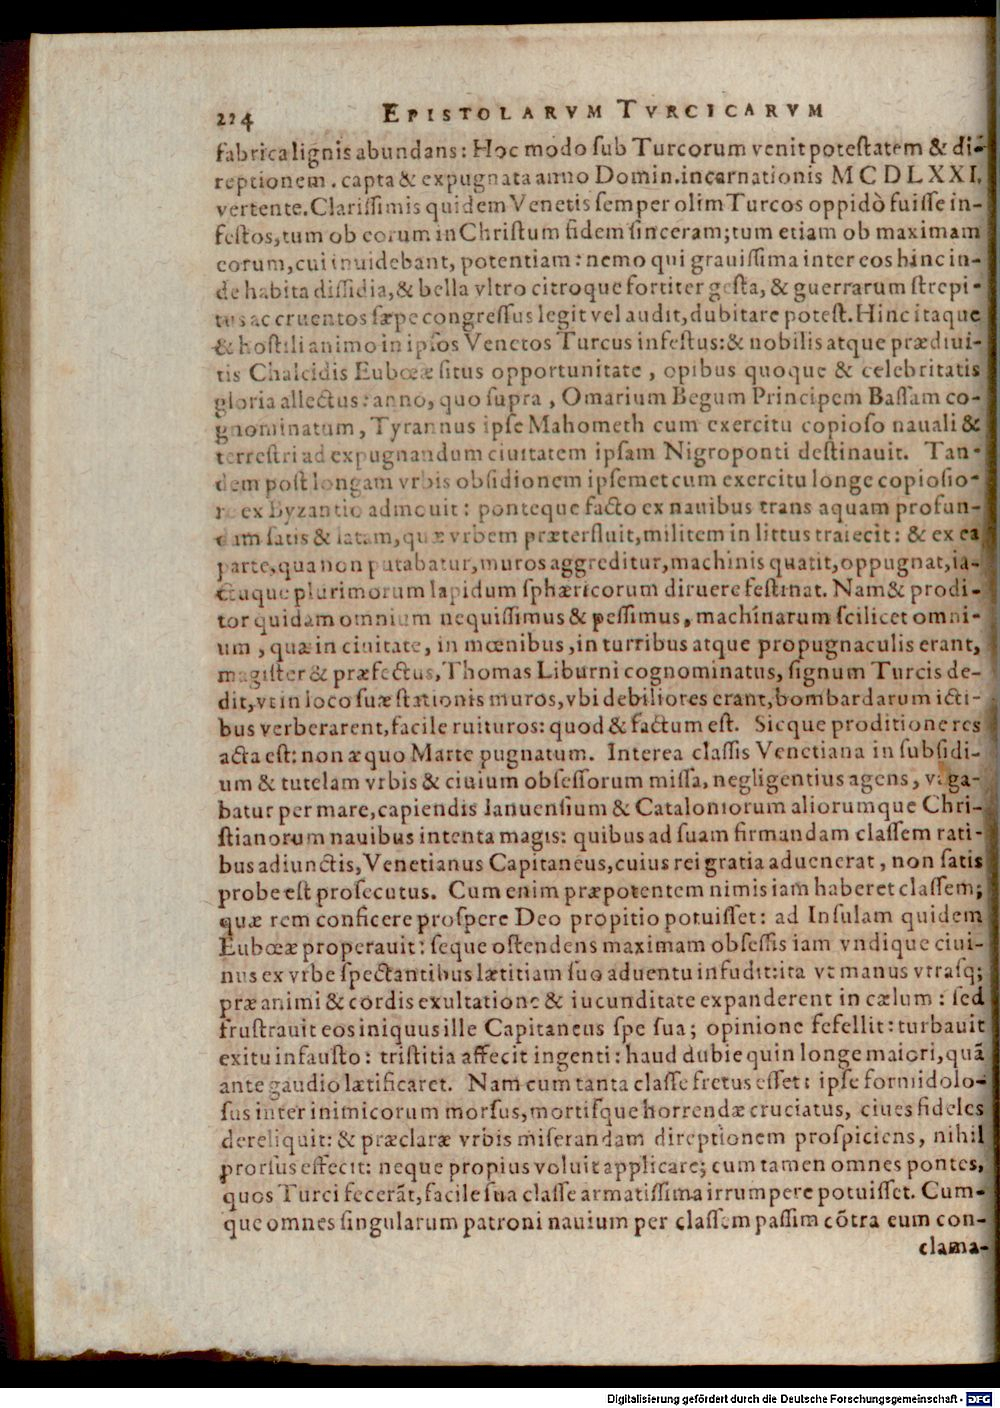 224 EPISTOLARVM TVRCICARVM
fabrica lignis abundans: Hoc modo ſub Turcorum venit poteſtatem & di-
reptionem. capta & expugnata anno Domin. incarnationis MCDLXXI.
vertente. Clariſſimis quidem Venetis ſemper olim Turcos oppidò fuiſſe in-
feſtos, tum ob eorum in Chriſtum fidem ſinceram; tum etiam ob maximam
eorum, cui inuidebant, potentiam: nemo qui grauiſſima inter eos hinc in-
de habita diſſidia, & bella vltro citroque fortiter geſta, & guerrarum ſtrepi-
tus ac cruentos ſæpe congreſſus legit vel audit, dubitare poteſt. Hinc itaque
& hoſtili animo in ipſos Venetos Turcus infeſtus: & nobilis atque prædiui-
tis Chalcidis Eubœæ ſitus opportunitate, opibus quoque & celebritatis
gloria allectus: anno, quo ſupra, Omarium Begum Principem Baſſam co-
gnominatum, Tyrannus ipſe Mahometh cum exercitu copioſo nauali &
terreſtri ad expugnandum ciuitatem ipſam Nigroponti deſtinauit. Tan-
dem poſt longam vrbis obſidionem ipſemet cum exercitu longe copioſio-
re ex Byzantio admouit: ponteque facto ex nauibus trans aquam profun-
dam ſatis & latam, quæ vrbem præterfluit, militem in littus traiecit: & ex ea
parte, qua non putabatur, muros aggreditur, machinis quatit, oppugnat, ia-
ctuque plurimorum lapidum ſphæricorum diruere feſtinat. Nam & prodi-
tor quidam omnium nequiſſimus & peſſimus, machinarum ſcilicet omni-
um, quæ in ciuitate, in mœnibus, in turribus atque propugnaculis erant,
magiſter & præfectus, Thomas Liburni cognominatus, ſignum Turcis de-
dit, vt in loco ſuæ ſtationis muros, vbi debiliores erant, bombardarum icti-
bus verberarent, facile ruituros: quod & factum eſt. Sicque proditione res
acta eſt: non æquo Marte pugnatum. Interea claſſis Venetiana in ſubſidi-
um & tutelam vrbis & ciuium obſeſſorum miſſa, negligentius agens, vaga-
batur per mare, capiendis Ianuenſium & Cataloniorum aliorumque Chri-
ſtianorum nauibus intenta magis: quibus ad ſuam firmandam claſſem rati-
bus adiunctis, Venetianus Capitaneus, cuius rei gratia aduenerat, non ſatis
probe eſt proſecutus. Cum enim præpotentem nimis iam haberet claſſem;
quæ rem conficere proſpere Deo propitio potuiſſet: ad Inſulam quidem
Eubœæ properauit: ſeque oſtendens maximam obſeſſis iam vndique ciui-
nus ex vrbe ſpectantibus lætitiam ſuo aduentu infudit: ita vt manus vtraſq;
præ animi & cordis exultatione & iucunditate expanderent in cælum: ſed
fruſtrauit eos iniquus ille Capitaneus ſpe ſua; opinione fefellit: turbauit
exitu infauſto: triſtitia affecit ingenti: haud dubie quin longe maiori, quā
ante gaudio lætificaret. Nam cum tanta claſſe fretus eſſet: ipſe formidolo-
ſus inter inimicorum morſus, mortiſque horrendæ cruciatus, ciues fideles
dereliquit: & præclaræ vrbis miſerandam direptionem proſpiciens, nihil
prorſus effecit: neque propius voluit applicare; cum tamen omnes pontes,
quos Turci fecerāt, facile ſua claſſe armatiſſima irrumpere potuiſſet. Cum-
que omnes ſingularum patroni nauium per claſſem paſſim cōtra eum con-
clama-
Digitalisierung gefördert durch die Deutsche Forschungsgemeinschaft - DFG